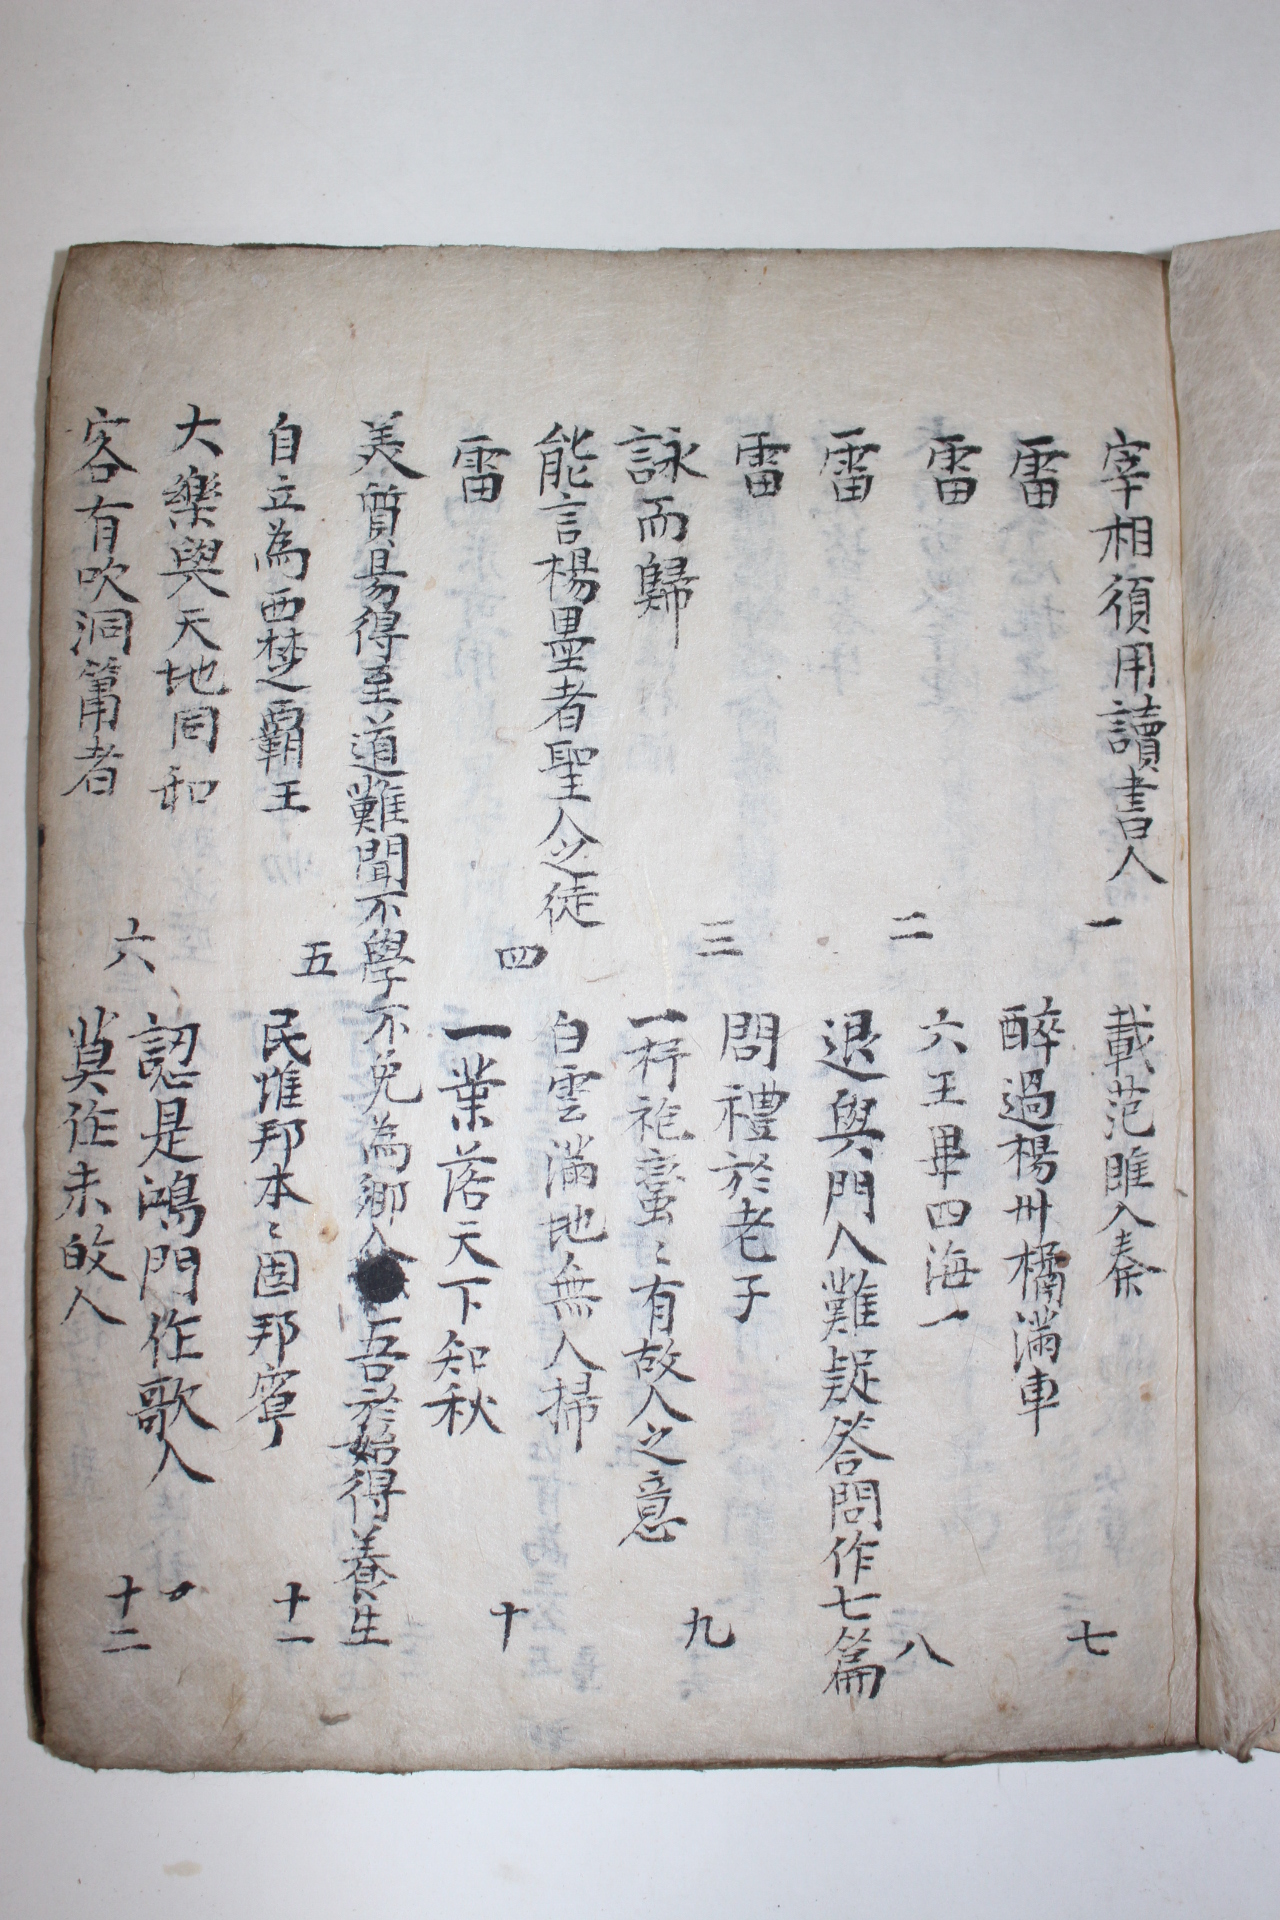 宰相須用讀書人
一
雷
雷
二
雷
雷
三
詠而歸
能言楊墨者聖人之徒
四
雷
美質易得至道難聞不學不免為鄉人
五
自立為西楚霸王
大樂與天地同和
六
客有吹洞簫者
載范雎入秦
七
醉過楊州橘滿車
六王畢四海一
八
退與門人難疑答問作七篇
問禮於老子
九
一 袍蠻〻有故人之意
白雲滿地無人掃
十
一葉落天下知秋
吾於始得養生
十一
民惟邦本〻固邦寧
認是鴻門作歌人
十二
莫作未 人